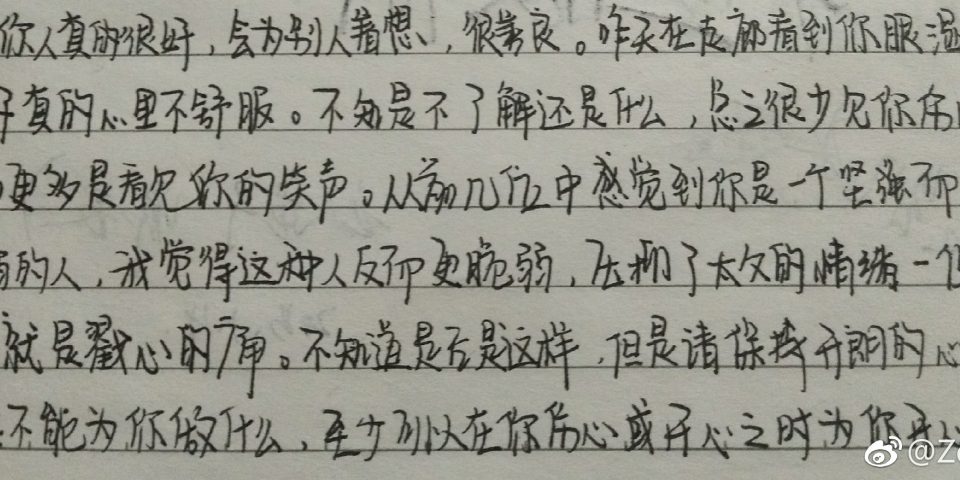 你人真的很好，会为别人着想，很善良。昨天在走廊看到你眼湿
真的心里不舒服。不知是不了解还是什么，总之很少见你伤
更多是看见你的笑声。从前几位中感觉到你是一个坚强而
的人，我觉得这种人反而更脆弱，压抑了太久的情绪一但
就是戳心的痛。不知道是否是这样，但是请保持开朗的心
不能为你做什么，至少可以在你伤心或开心之时为你开心
@Z